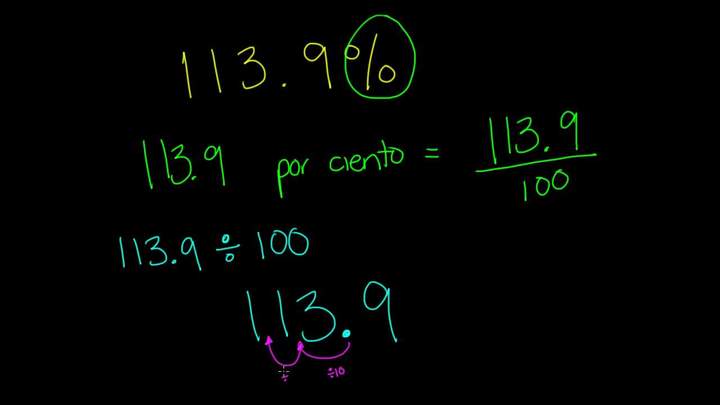 113.9%
113.9 por ciento = 113.9/100
113.9 ÷ 100
113.9
÷ ÷10